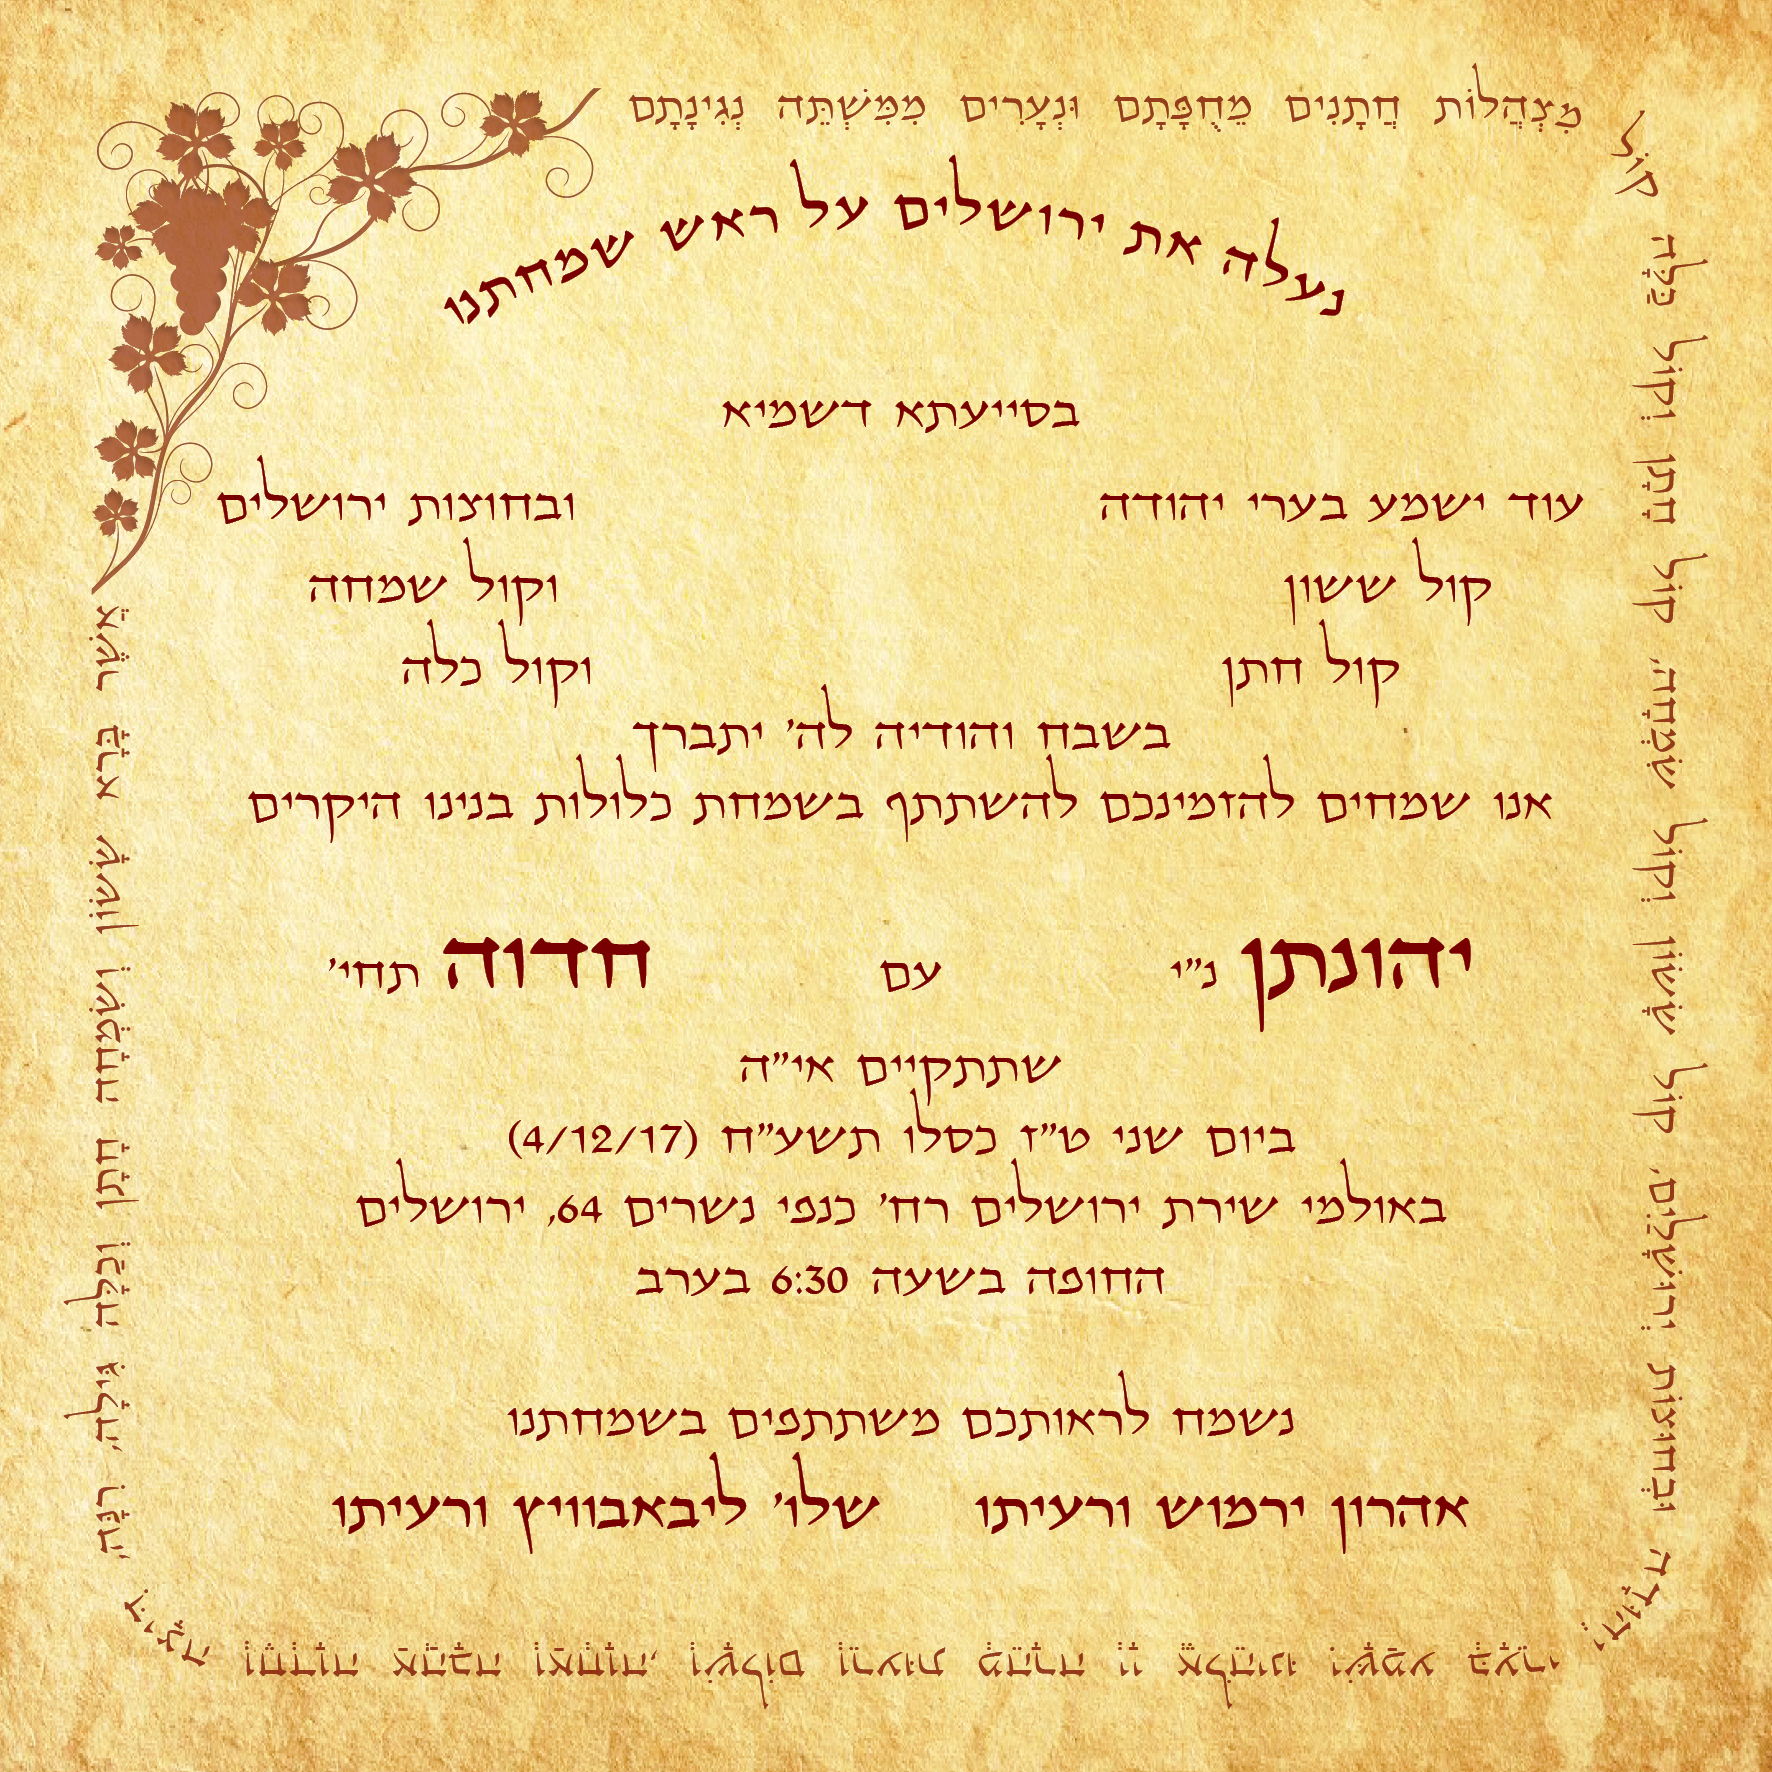 נעלה את ירושלים על ראש שמחתנו
בסייעתא דשמיא
עוד ישמע בערי יהודה ובחוצות ירושלים
קול ששון וקול שמחה
קול חתן וקול כלה
בשבח והודיה לה' יתברך
אנו שמחים להזמינכם להשתתף בשמחת כלולות בנינו היקרים
יהונתן נ"י עם חדוה תחי'
שתתקיים אי"ה
ביום שני ט"ז כסלו תשע"ח (4/12/17)
באולמי שירת ירושלים רח' כנפי נשרים 64, ירושלים
החופה בשעה 6:30 בערב
נשמח לראותכם משתתפים בשמחתנו
אהרון ירמוש ורעיתו שלו' ליבאבוויץ ורעיתו
אֲשֶׁר בָּרָא שָׂשׂוֹן וְשִׂמְחָה חָתָן וְכַלָּה גִּילָה, רִנָּה,
דִּיצָה וְחֶדְוָה אַהֲבָה וְאַחֲוָה, וְשָׁלוֹם וְרֵעוּת מְהֵרָה יְיָ אֱלֹהֵינוּ יִשָּׁמַע בְּעָרֵי יְהוּדָה
וּבְחוּצוֹת יְרוּשָׁלַיִם, קוֹל שָׂשׂוֹן וְקוֹל שִׂמְחָה, קוֹל חָתָן וְקוֹל כַּלָּה
קוֹל מִצְהֲלוֹת חֲתָנִים מֵחֻפָּתָם וּנְעָרִים מִמִּשְׁתֵּה נְגִינָתָם